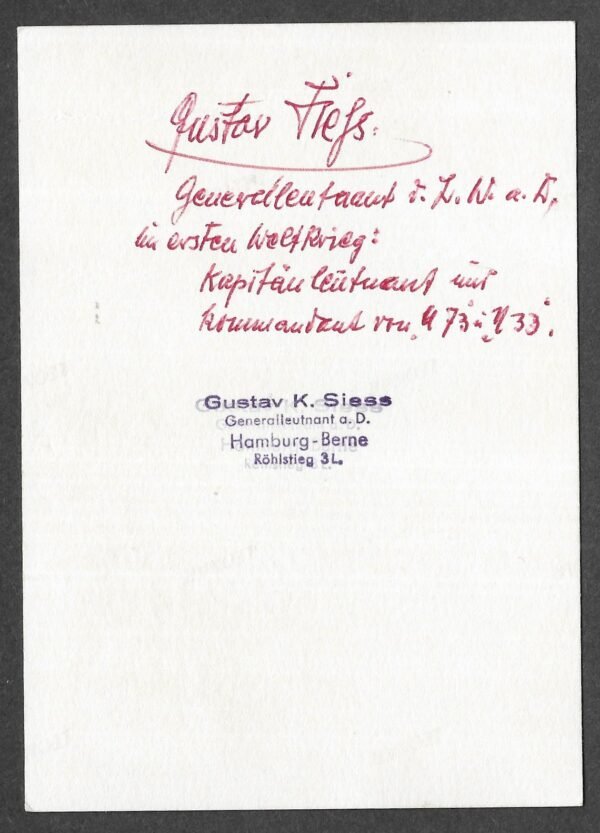 Gustav Sieß.
Generalleutnant d. L. W. a. D.,
im ersten Weltkrieg:
Kapitänleutnant und
Kommandant von „U 73" u. „U 33".
Gustav K. Siess
Generalleutnant a. D.
Hamburg-Berne
Röhlstieg 3 L.